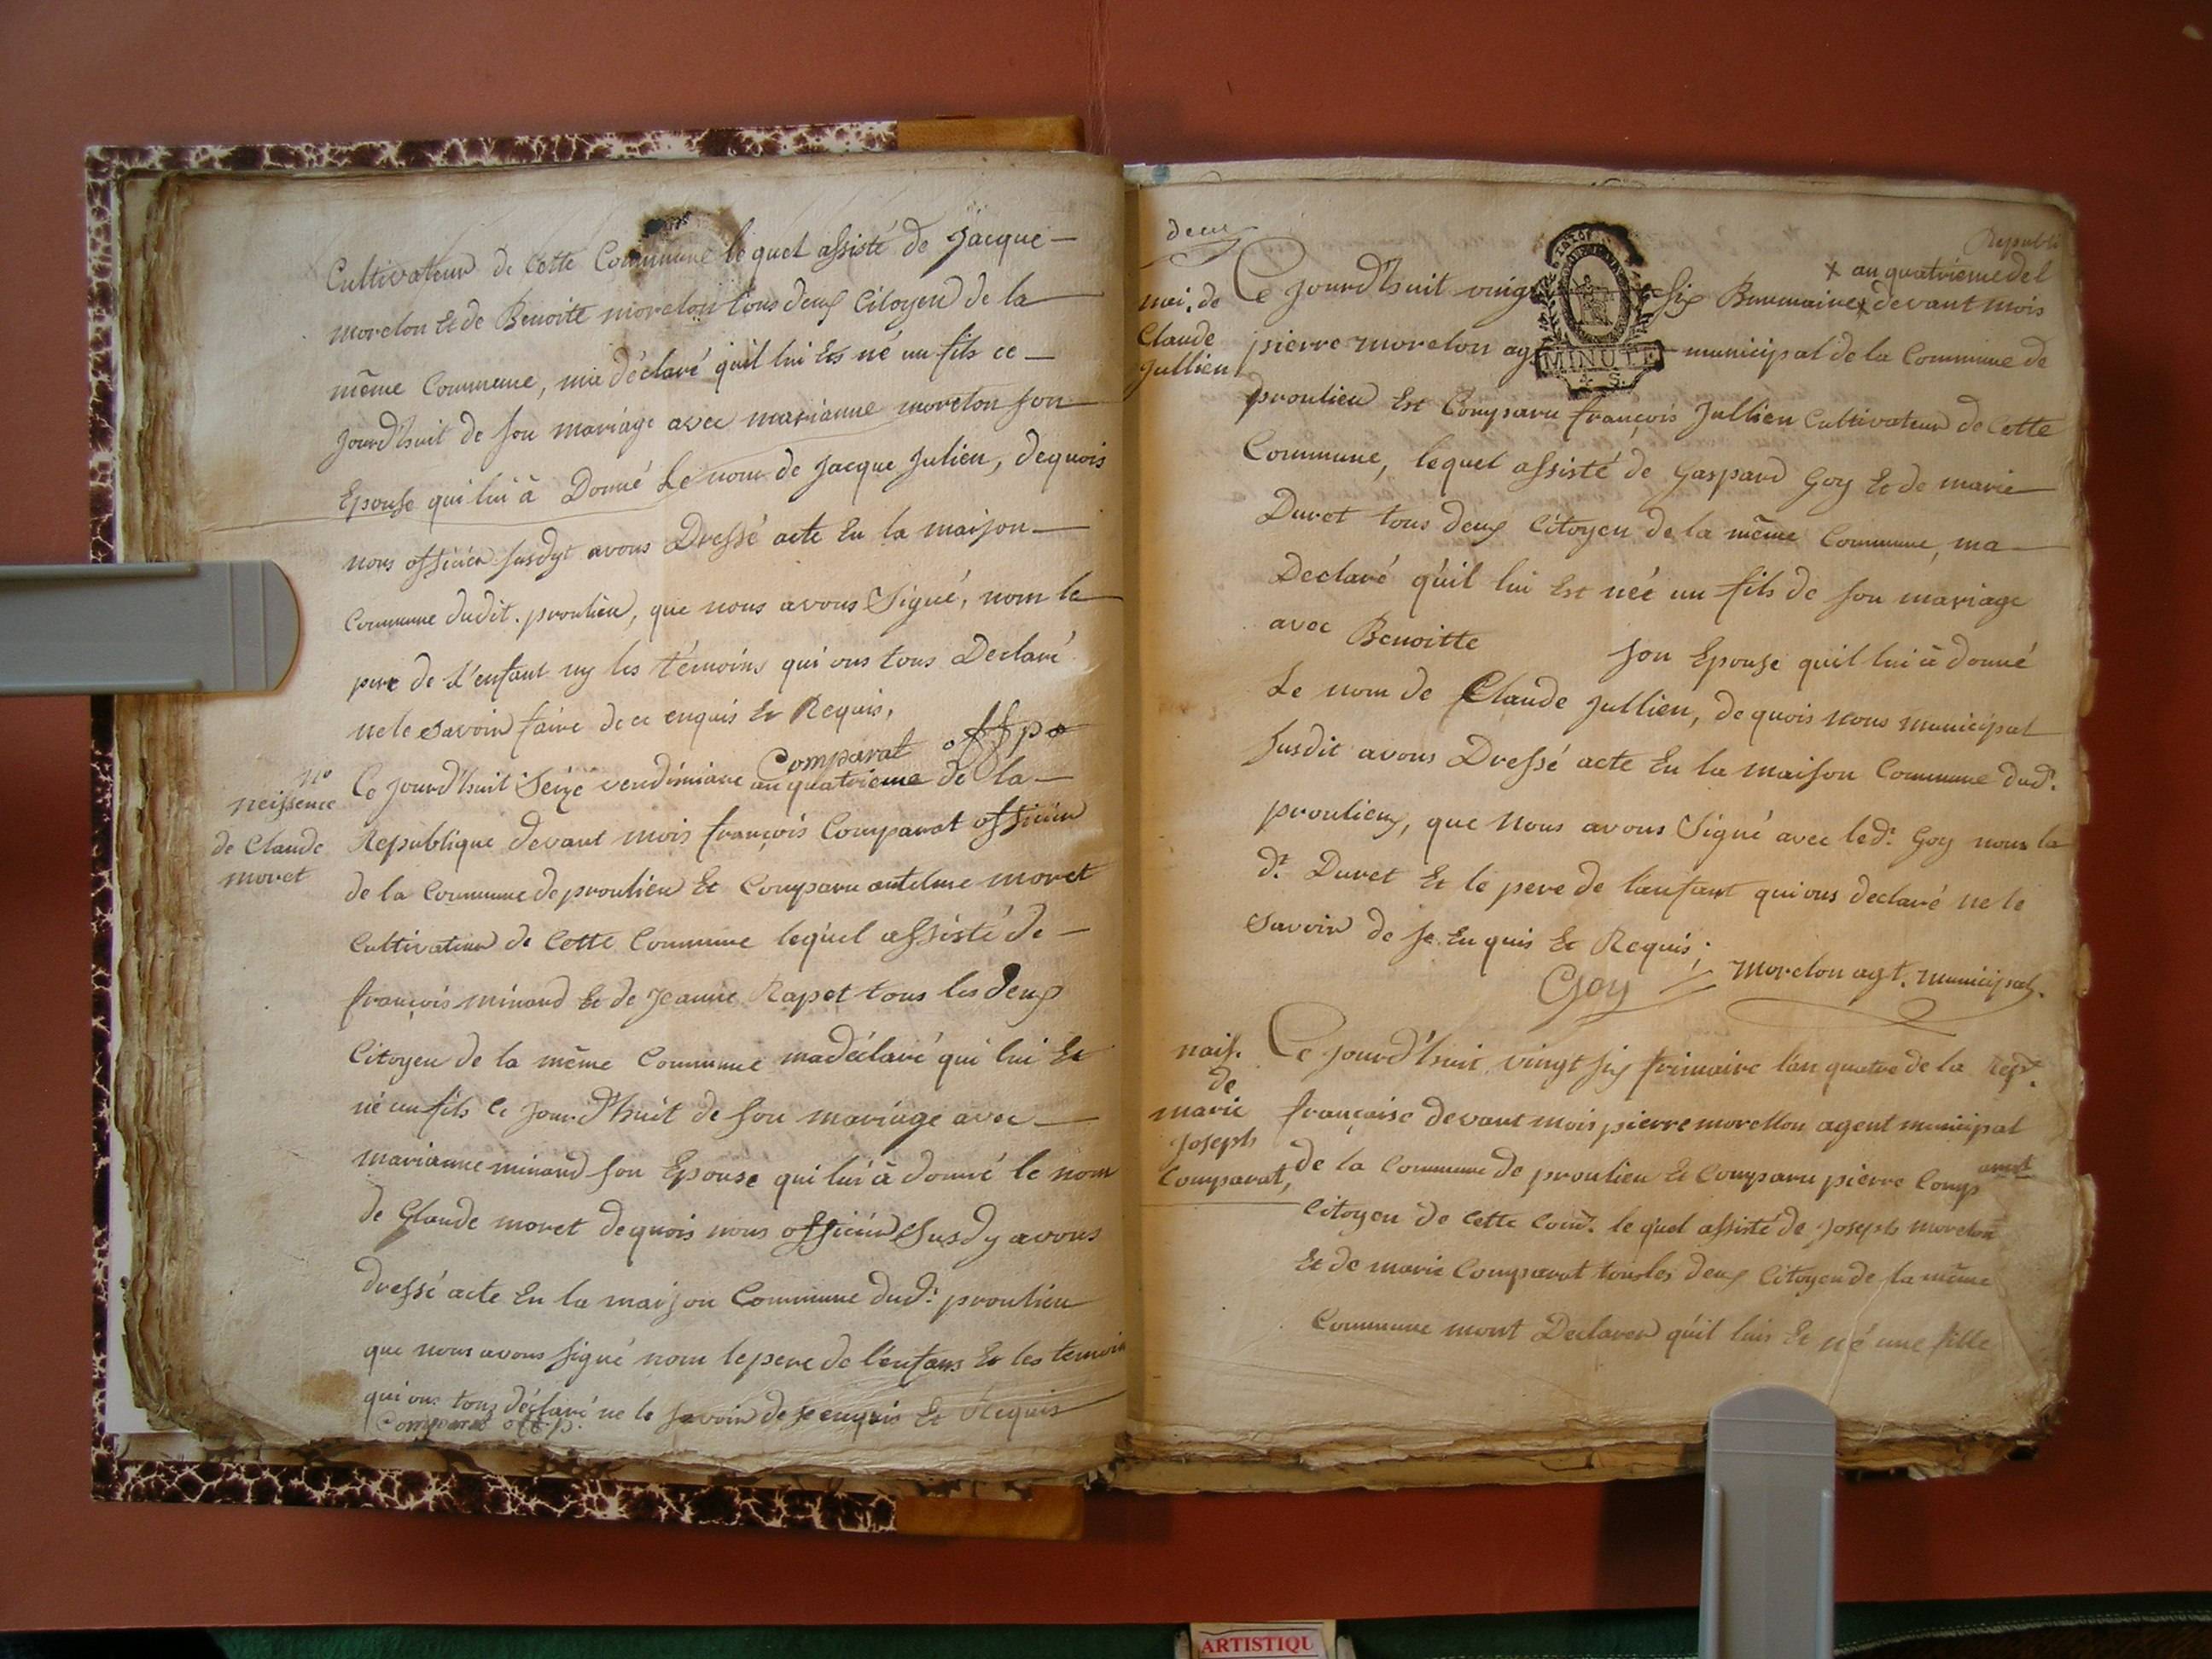 Cultivateur de Cette Commune lequel assisté de Jacque
morelon Et de Benoite morelon tous deux Citoyen de la
même Commune, ma déclaré quil lui Es né un fils ce
Jourd'huit de son mariage avec marianne morelon son
Epouse qui lui à Donné Le nom de Jacque Julien, dequois
nous officier susdyt avons Dressé acte En la maison
Commune dudit. proulieu, que nous avons Signé, nom le
pere de L'enfant ny les témoins qui ons tous Declaré
ne le savoir faire de ce enquis Et Requis,
Comparat offpo
no
neissence
de Claude
moret
Ce Jourd'huit Seize vendimiaire an quatrieme de la
Republique devant mois françois Comparat officier
de la Commune de proulieu Et Comparu antelme moret
Cultivateur de Cette Commune lequel assisté de
françois minand Et de Jeanne Rapet tous les deux
Citoyen de la même Commune ma déclaré qui lui Et
né un fils Ce Jourd'huit de son mariage avec
marianne minand son Epouse qui lui à donné le nom
de Glaude moret dequois nous officier Susdy avons
dressé acte En la maison Commune dudt. proulieu
que nous avons signé nom le pere de l'enfans Et les temoin
qui ons tous déclaré ne le savoir de se enquis Et Requis
Comparat off p.
deux
nai. de
Claude
Jullien
Republi
x an quatrieme del
Ce Jourd'huit vingt six Brumaire x devant mois
MINUTE
pierre morelon agt municipal de la Commune de
proulieu Est Comparu françois Jullien Cultivateur de Cette
Commune, lequel assisté de Gaspard Goy Et de marie
Duret tous deux Citoyen de la même Commune, ma
Declaré quil lui Est néé un fils de son mariage
avec Benoitte son Epouse quil lui à donné
Le nom de Claude Jullien, de quois nous municipal
susdit avons Dressé acte En la maison Commune dudt.
proulieu, que nous avons Signé avec ledt. Goy nom la
dt. Duret Et le pere de l'anfant qui ons declaré ne le
savoir de se Enquis Et Requis;
Goy Morelon agt. municipal.
naiss.
de
marie
Joseph
Comparat,
Ce Jourd'huit vingt six frimaire l'an quatre de la Rept.
française devant mois pierre morellon agent municipal
de la Commune de proulieu Et Comparu pierre Comparat
Citoyen de Cette Comt. lequel assisté de Joseph morelon
Et de marie Comparat tous les deux Citoyen de la même
Commune mont Declarer quil luis Et né une fille
ARTISTIQU